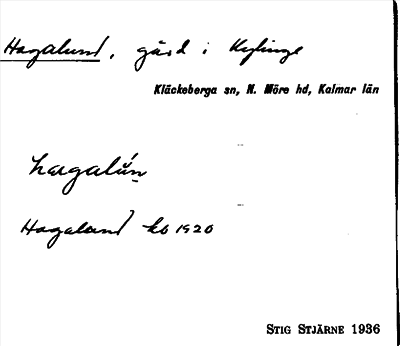 Hagalund, gård i Kylinge
Kläckeberga sn, N. Möre hd, Kalmar län
hagalún
Hagalund kb 1920
STIG STJÄRNE 1936